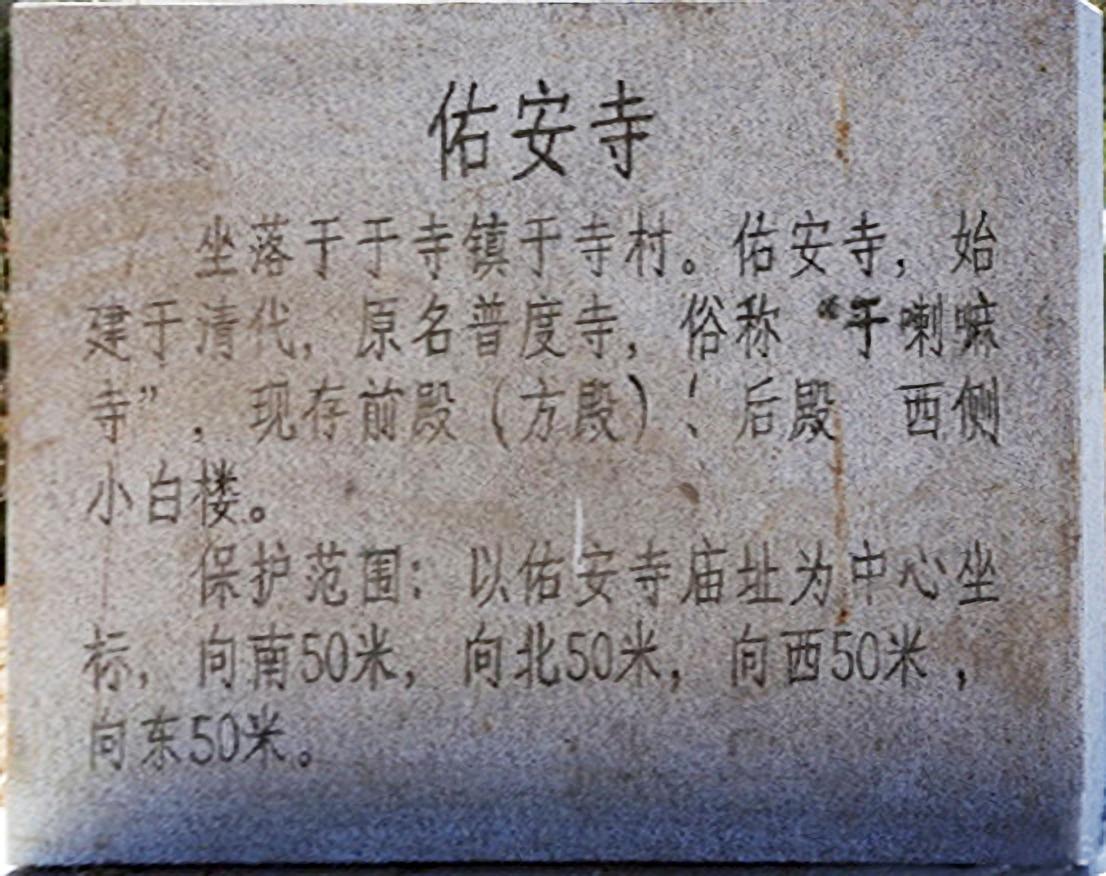 佑安寺
坐落于于寺镇于寺村。佑安寺，始
建于清代，原名普度寺，俗称“于喇嘛
寺”，现存前殿（方殿）、后殿 西侧
小白楼。
保护范围：以佑安寺庙址为中心坐
标，向南50米，向北50米，向西50米，
向东50米。